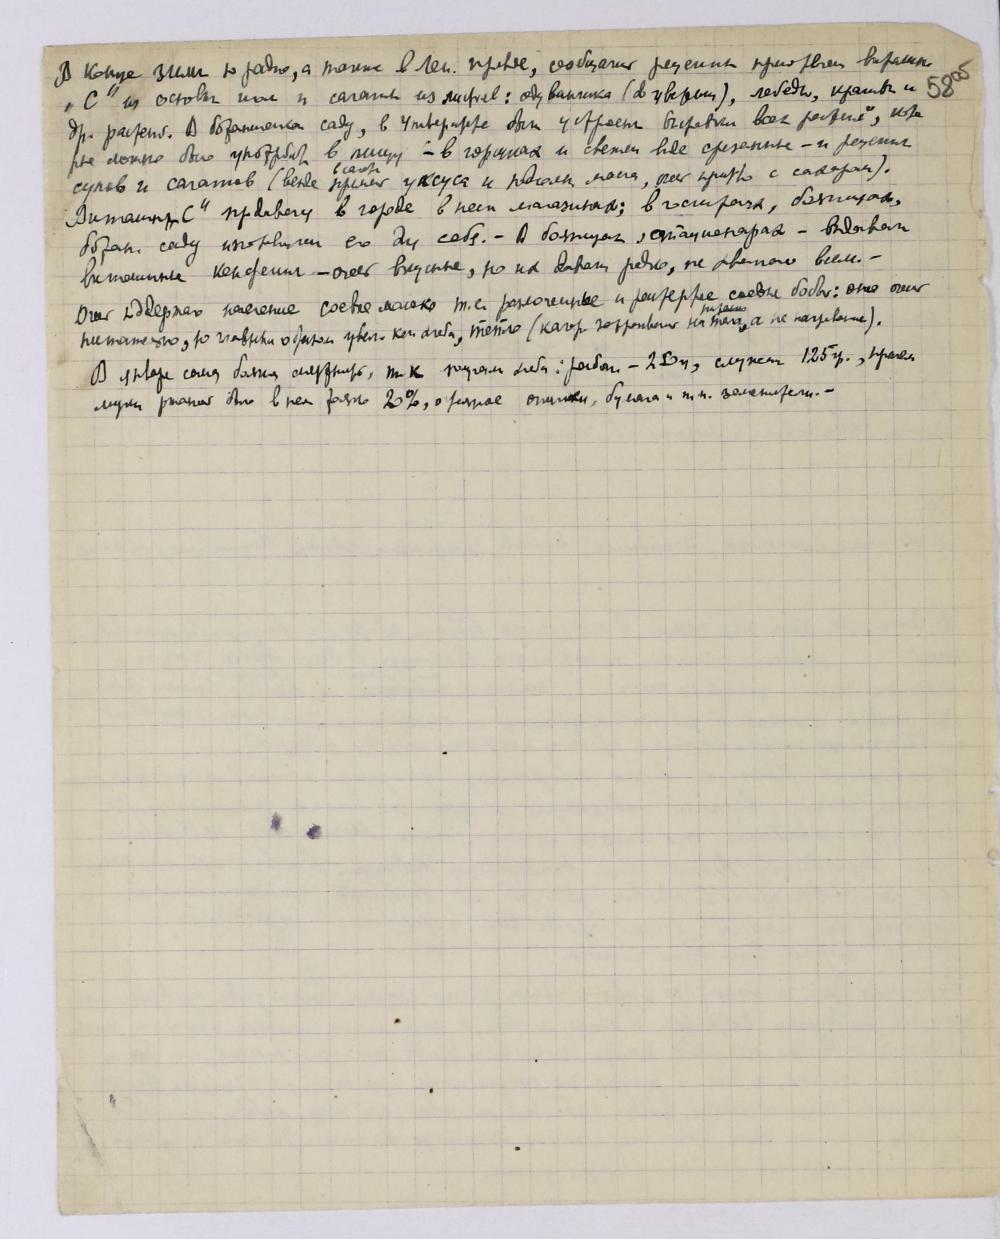 В конце зимы по радио, а также в Лен. правде, сообщались рецепты приготовлен. витамина
"С" из основы хвои и салаты из листьев: одуванчика (в уверт.), лебеды, крапивы и
др. растений. В ботаническом саду, в Университете были устроены выставки всех растений, кото
рые можно было употреблять в пищу – в горшках и свежем виде срезанные – и рецепты
супов и салатов (везде в салат уксуса и масла, очень с сахаром).
Витамин "С" продавали в городе в магазинах; в госпиталях, больницах,
Ботан. саду изготовляли его для себя. – В больницах, стационарах – выдавали
витаминные конфеты – очень вкусные, но их давали редко, не хватало всем. –
Очень поддержало население соевое молоко т.е. размоченные и растертые соевые бобы: оно очень
питательно, но главным образом увелич. кол. хлеба, тепло (калор. на тепло, а не на питание).
В январе самая большая смертность, т.к. получали хлеба: рабоч. – 250, служащ. 125 гр., причем
муки ржаной было в нем только 20%, остальное опилки, бумага и т.п. заменители. –
58 об